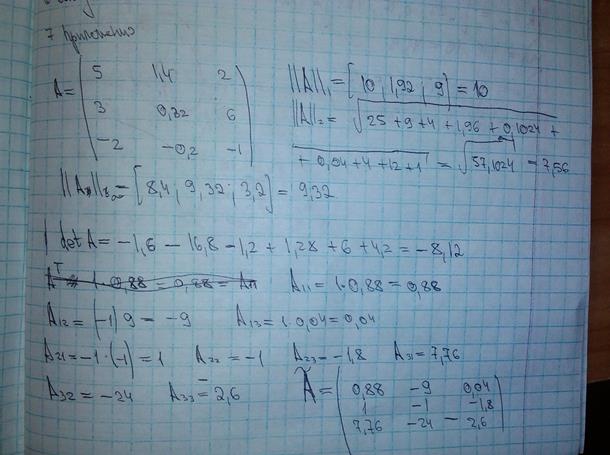 7 приложение
A = ( 5 1,4 2
3 0,32 6
-2 -0,2 -1 )
||A||₁ = [10, 1,92; 9] = 10
||A||₂ = √25+9+4+1,96+0,1024+
+0,04+4+12+1 = √57,1024 = 7,56
||A||∞ = [8,4; 9,32; 3,2] = 9,32
det A = -1,6 - 16,8 - 1,2 + 1,28 + 6 + 4,2 = -8,12
A₁₁ = 1·0,88 = 0,88
A₁₂ = (-1) 9 = -9 A₁₃ = 1·0,04 = 0,04
A₂₁ = -1·(-1) = 1 A₂₂ = -1 A₂₃ = -1,8 A₃₁ = 7,76
A₃₂ = -24 A₃₃ = 2,6 Ã = ( 0,88 -9 0,04
1 -1 -1,8
7,76 -24 - 2,6 )